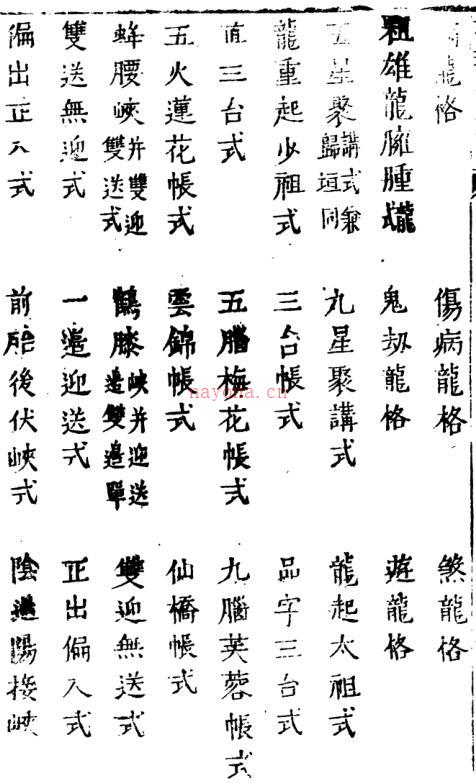 龍格 傷病龍格 煞龍格
粗雄龍臃腫 鬼劫龍格 遊龍格
五星聚講式兼歸垣同 九星聚講式 龍起太祖式
龍重起少祖式 三台帳式 品字三台式
直三台式 五腦梅花帳式 九腦芙蓉帳式
五火蓮花帳式 雲錦帳式 仙橋帳式
蜂腰峽并雙迎雙送式 鶴膝峽并迎送邊雙邊單 雙迎無送式
雙送無迎式 一邊迎送式 正出偏入式
偏出正入式 前胎後伏峽式 陰陽接峽
nayona.cn